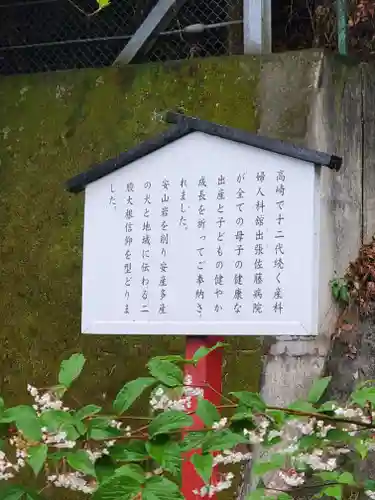 高崎で十二代続く産科
婦人科館出張佐藤病院
が全ての母子の健康な
出産と子どもの健やか
成長を祈ってご奉納さ
れました。
安山岩を削り安産多産
の犬と地域に伝わる二
股大根信仰を型どりま
した。